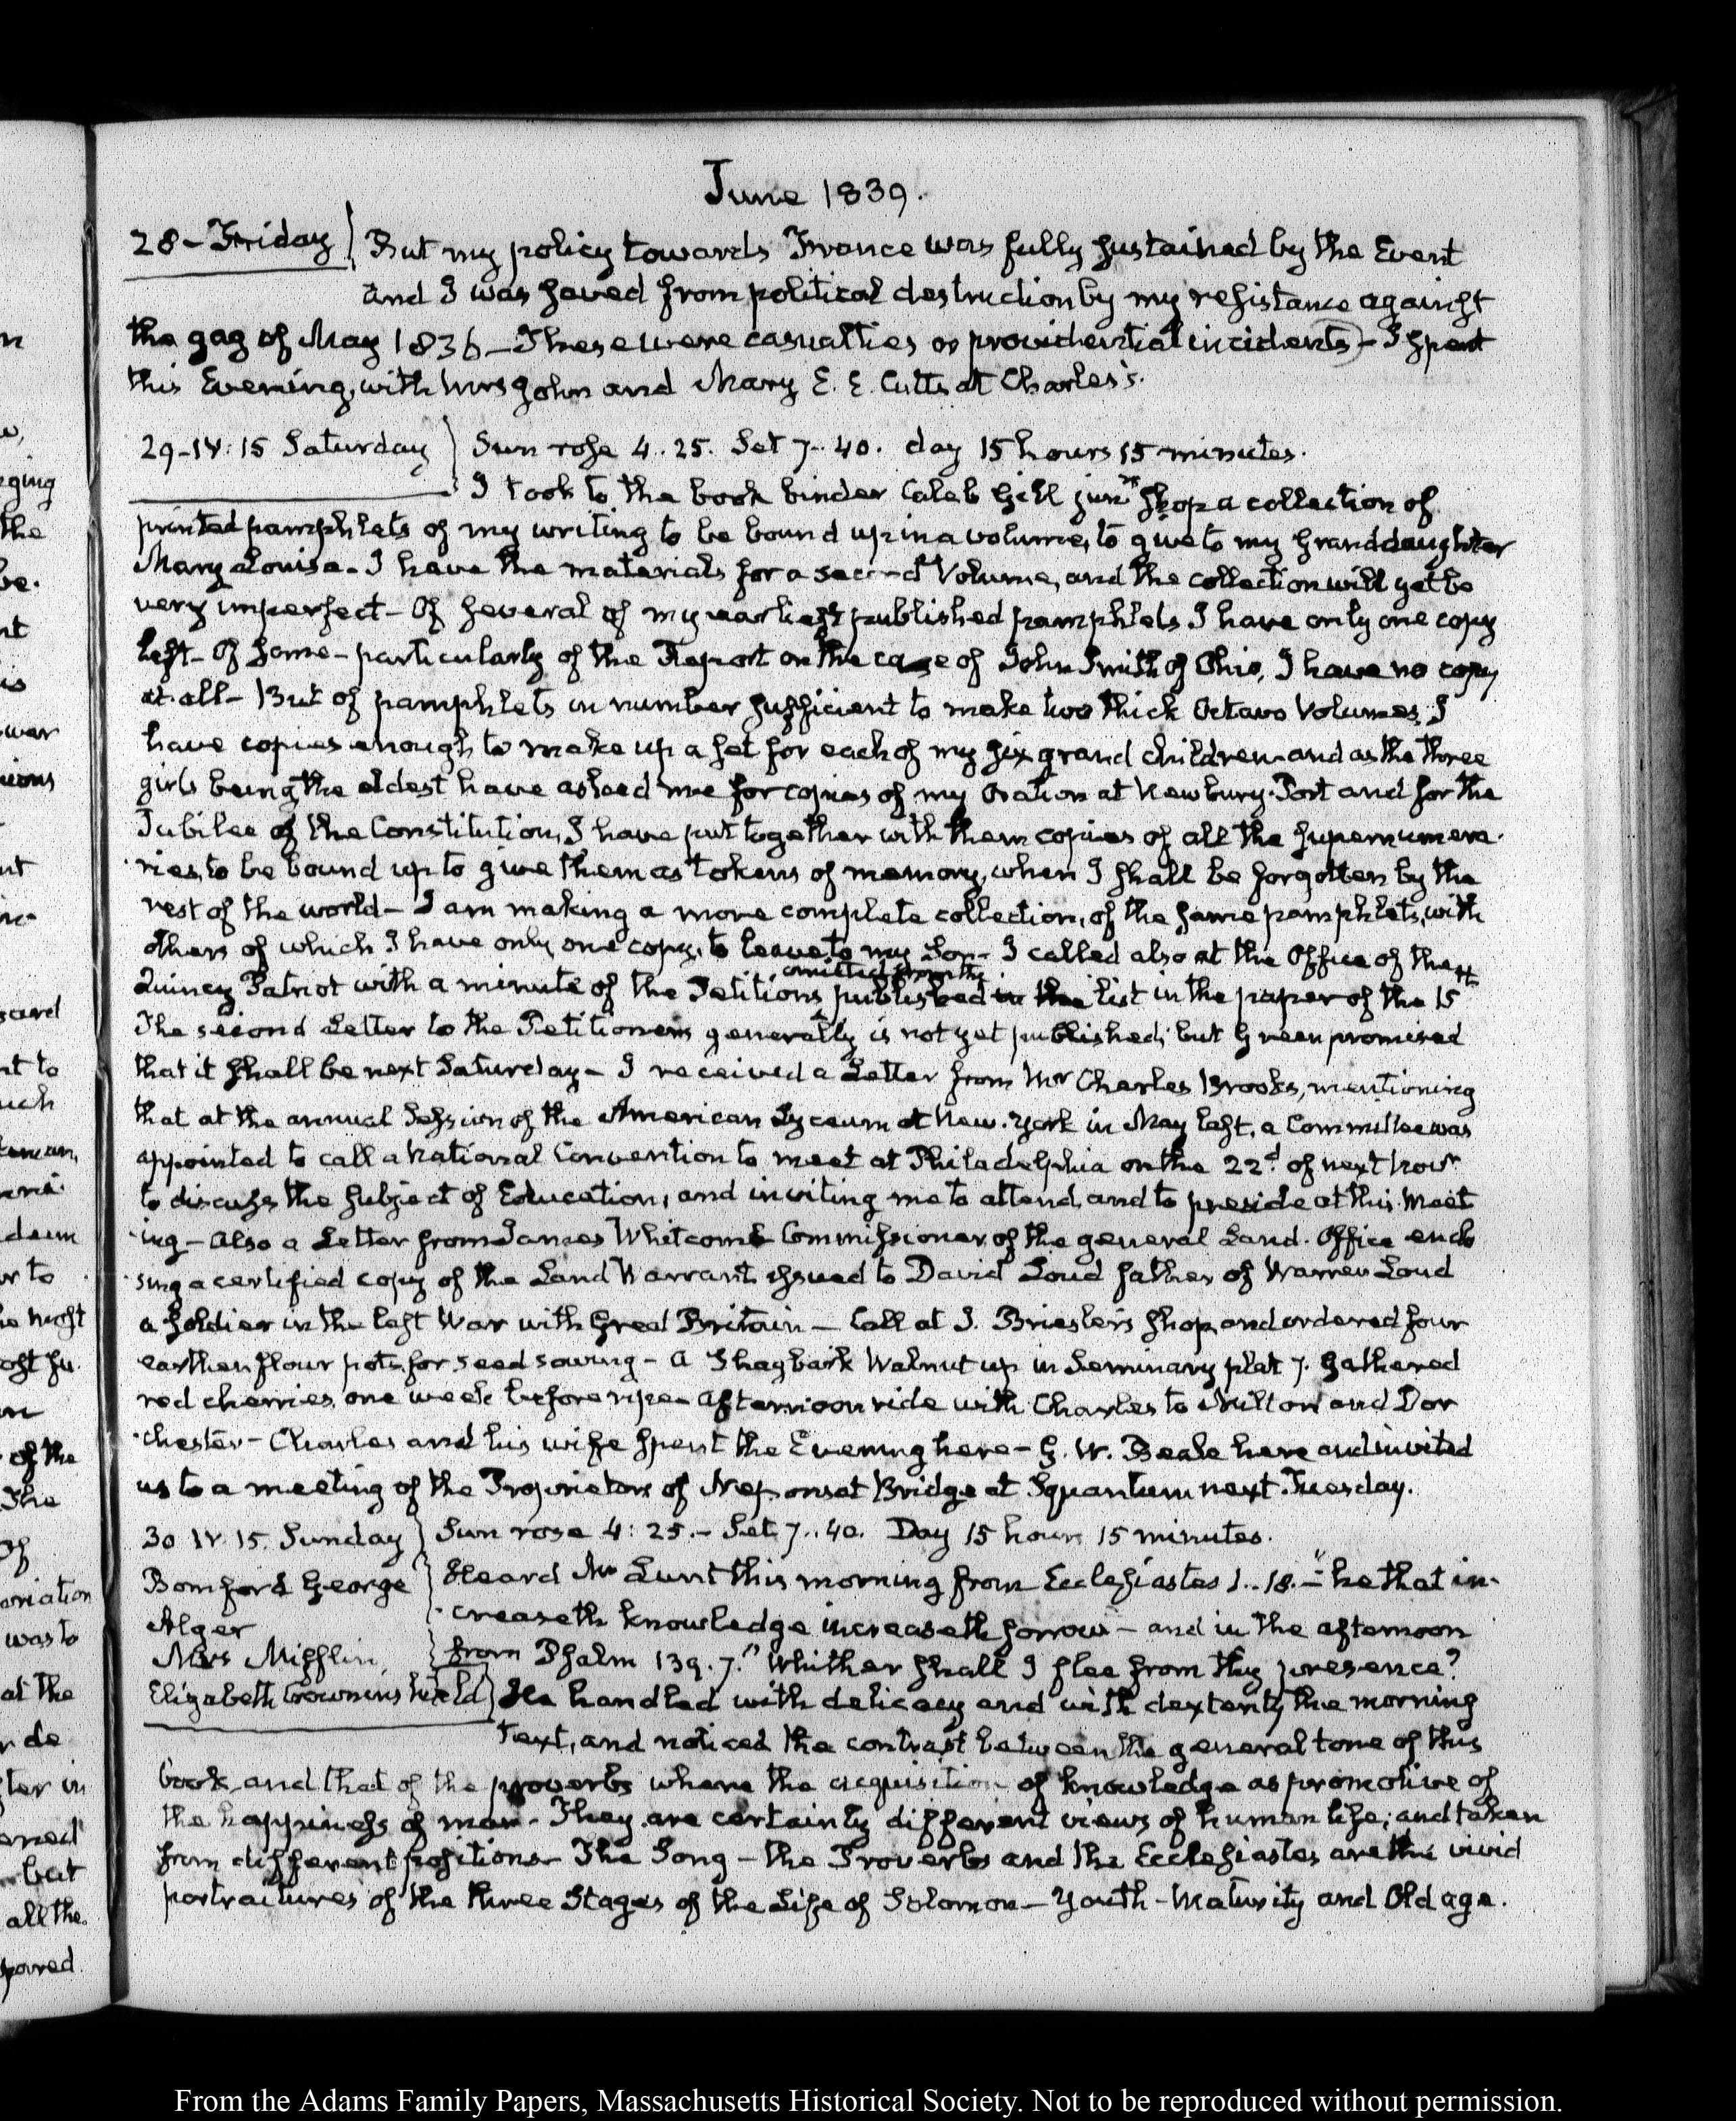 June 1839.
28 – Friday } But my policy towards France was fully sustained by the Event
and I was saved from political destruction by my resistance against
the gag of May 1836 – These were casualties or providential incidents – I spent
this Evening, with Mrs John and Mary E. E. Cutts at Charles's.
29 – IV: 15 Saturday } Sun rose 4..25. Set 7..40. day 15 hours 15 minutes.
I took to the book binder Caleb Gill junr. shop a collection of
printed pamphlets of my writing to be bound up in a volume, to give to my Granddaughter
Mary Louisa – I have the materials for a second Volume, and the collection will yet be
very imperfect – Of several of my earliest published pamphlets I have only one copy
left – Of some – particularly of the Report on the case of John Smith of Ohio, I have no copy
at all – But of pamphlets in number sufficient to make two thick Octavo Volumes, I
have copies enough to make up a set for each of my six grand children and as the three
girls being the eldest have asked me for copies of my Oration at Newbury-Port and for the
Jubilee of the Constitution, I have put together with them copies of all the supernumera-
ries, to be bound up to give them as tokens of memory, when I shall be forgotten by the
rest of the world – I am making a more complete collection, of the same pamphlets, with
others of which I have only one copy, to leave to my Son – I called also at the Office of the
Quincy Patriot with a minute of the Petitions omitted from the published in the list in the paper of the 15th
The second Letter to the Petitioners generally is not yet published; but Green promised
that it shall be next Saturday – I received a Letter from Mr Charles Brooks, mentioning
that at the annual Session of the American Lyceum at New-York in May last, a Committee was
appointed to call a National Convention to meet at Philadelphia on the 22d of next Novr
to discuss the subject of Education, and inviting me to attend and to preside at this Meet
ing – Also a Letter from James Whitcomb Commissioner of the general Land-Office enclo
sing a certified copy of the Land Warrant issued to David Loud father of Warren Loud
a Soldier in the last War with Great Britain – Call at J. Briesler's shop, and ordered four
earthen flour pots for seed sowing – A Shagbark Walnut up in Seminary plat 7. Gathered
red cherries, one week before ripe – Afternoon ride with Charles to Milton and Dor
chester – Charles and his wife spent the Evening here – G. W. Beale here and invited
us to a meeting of the Proprietors of Neponset Bridge at Squantum next Tuesday.
30 IV. 15. Sunday } Sun rose 4: 25. – Set 7..40. Day 15 hours 15 minutes.
Bomford George } Heard Mr Lunt this morning from Ecclesiastes 1..18. – "he that in-
Alger creaseth knowledge increaseth sorrow – and in the afternoon
Mrs Mifflin, } from Psalm 139. 7. "Whither shall I flee from thy presence?
Elizabeth Crowninshield } He handled with delicacy and with dexterity the morning
text, and noticed the contrast between the general tone of this
book, and that of the proverbs where the acquisition of knowledge as promotive of
the happiness of man – They are certainly different views of human life; and taken
from different positions – The Song – the Proverbs and the Ecclesiastes are the vivid
portraitures of the three Stages of the Life of Solomon – Youth – Maturity and Old age.
From the Adams Family Papers, Massachusetts Historical Society. Not to be reproduced without permission.